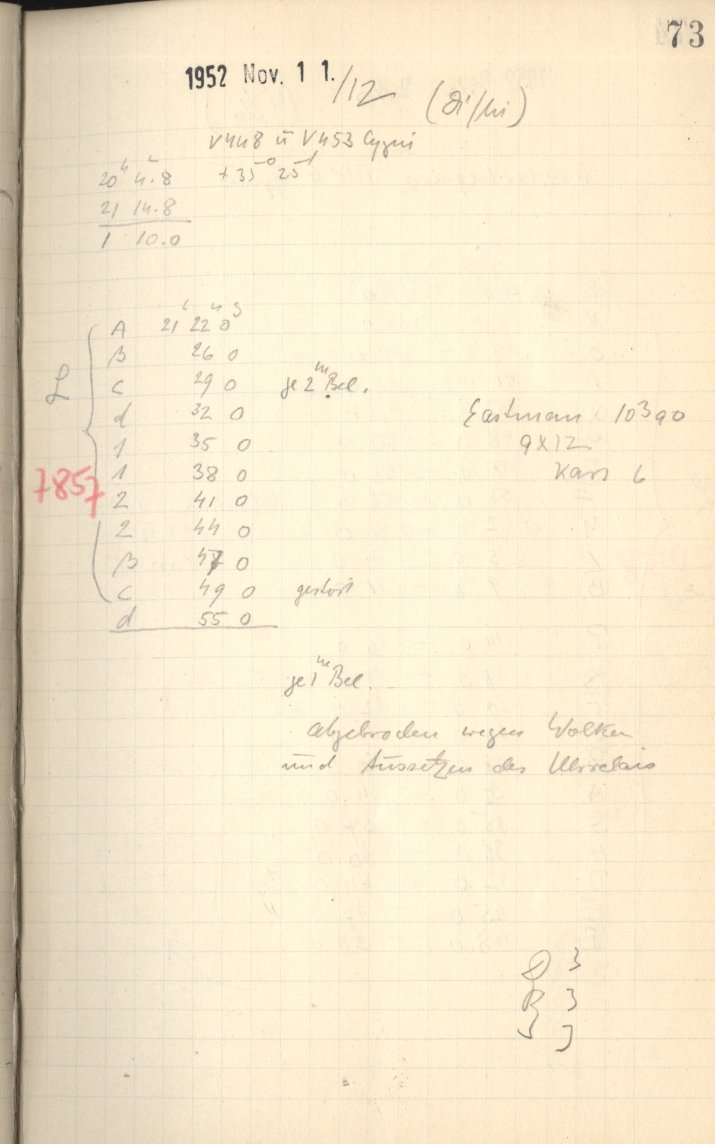 73
1952 Nov. 11./12 (di/hi)
V448 u V453 Cygni
20ʰ 4.8 +35° 25'
21 14.8
1 10.0
A 21ʰ 22ᵐ 0ˢ
B 26 0
C 29 0 je 2ᵐ Bel.
d 32 0 Eastman 103a0
1 35 0 9x12
1 38 0 Kass 6
7857
2 41 0
2 44 0
B 47 0
C 49 0 gestört
d 55 0
je 1ᵐ Bel.
abgebrochen wegen Wolken
und Aussetzen des Uhrrelais
D 3
R 3
J 3